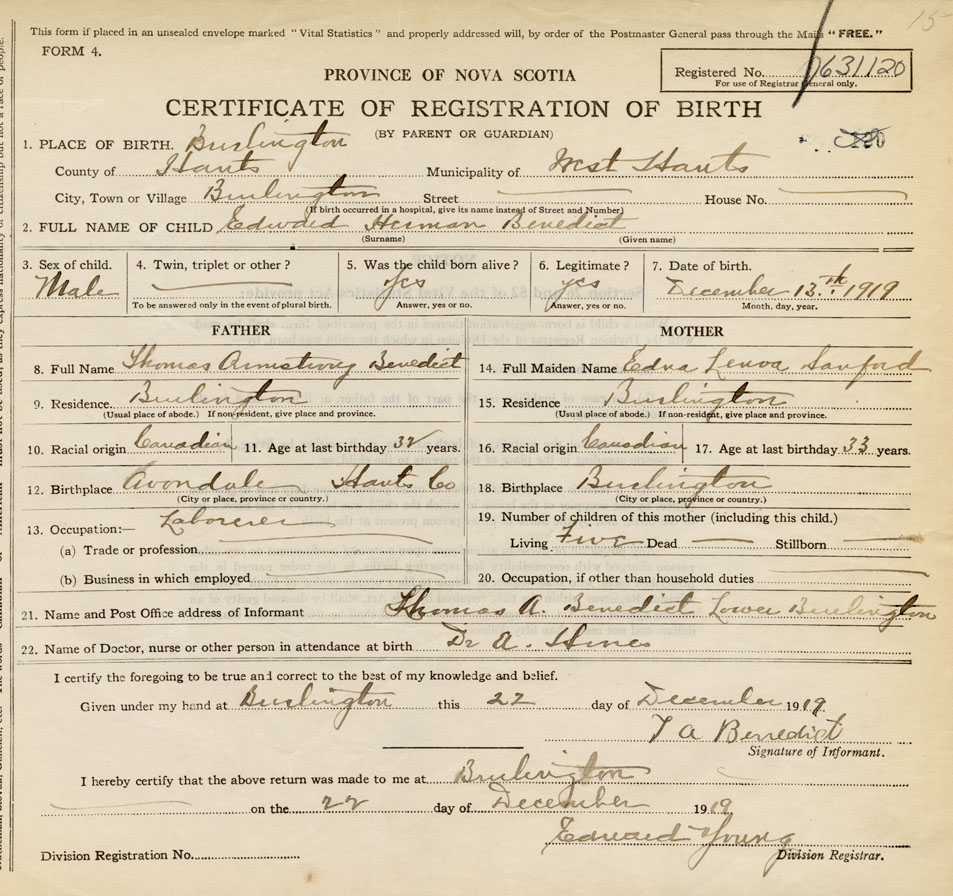 15
This form if placed in an unsealed envelope marked "Vital Statistics" and properly addressed will, by order of the Postmaster General pass through the Mails "FREE."
FORM 4.
PROVINCE OF NOVA SCOTIA
Registered No. 7631120
For use of Registrar General only.
CERTIFICATE OF REGISTRATION OF BIRTH
(BY PARENT OR GUARDIAN)
1. PLACE OF BIRTH. Burlington
County of Hants Municipality of West Hants
City, Town or Village Burlington Street House No.
(If birth occurred in a hospital, give its name instead of Street and Number)
2. FULL NAME OF CHILD Edward Herman Benedict
(Surname) (Given name)
3. Sex of child. 4. Twin, triplet or other? 5. Was the child born alive? 6. Legitimate? 7. Date of birth.
Male yes yes December 13th 1919
To be answered only in the event of plural birth. Answer, yes or no. Answer, yes or no. Month, day, year.
FATHER MOTHER
8. Full Name Thomas Armstrong Benedict 14. Full Maiden Name Edna Lenoa Sanford
9. Residence. Burlington 15. Residence Burlington
(Usual place of abode.) If non-resident, give place and province. (Usual place of abode.) If non-resident, give place and province.
10. Racial origin Canadian 11. Age at last birthday 32 years. 16. Racial origin Canadian 17. Age at last birthday 33 years.
12. Birthplace Avondale Hants Co 18. Birthplace Burlington
(City or place, province or country.) (City or place, province or country.)
13. Occupation:— Laborer 19. Number of children of this mother (including this child.)
(a) Trade or profession Living Five Dead Stillborn
(b) Business in which employed 20. Occupation, if other than household duties
21. Name and Post Office address of Informant Thomas A. Benedict Lower Burlington
22. Name of Doctor, nurse or other person in attendance at birth Dr A.
I certify the foregoing to be true and correct to the best of my knowledge and belief.
Given under my hand at Burlington this 22 day of December 1919.
T A Benedict
Signature of Informant.
I hereby certify that the above return was made to me at Burlington
on the 22 day of December 1919
Edward Young
Division Registration No. Division Registrar.